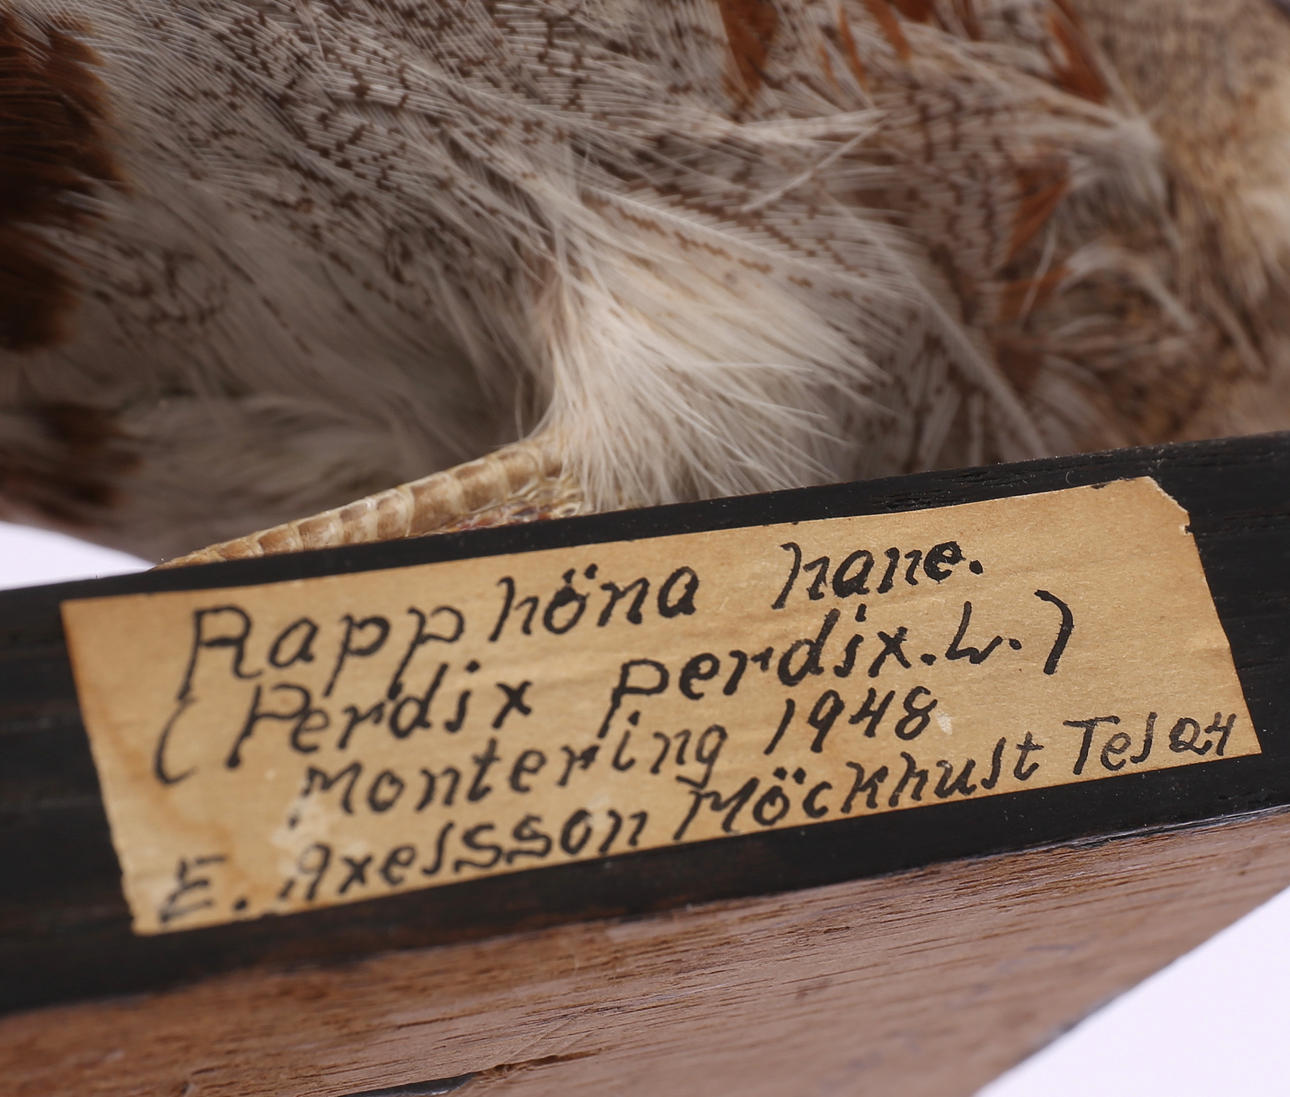 Rapphöna hane.
(Perdix perdix.L.)
Montering 1948
E. Axelsson Möckhult Tel 24